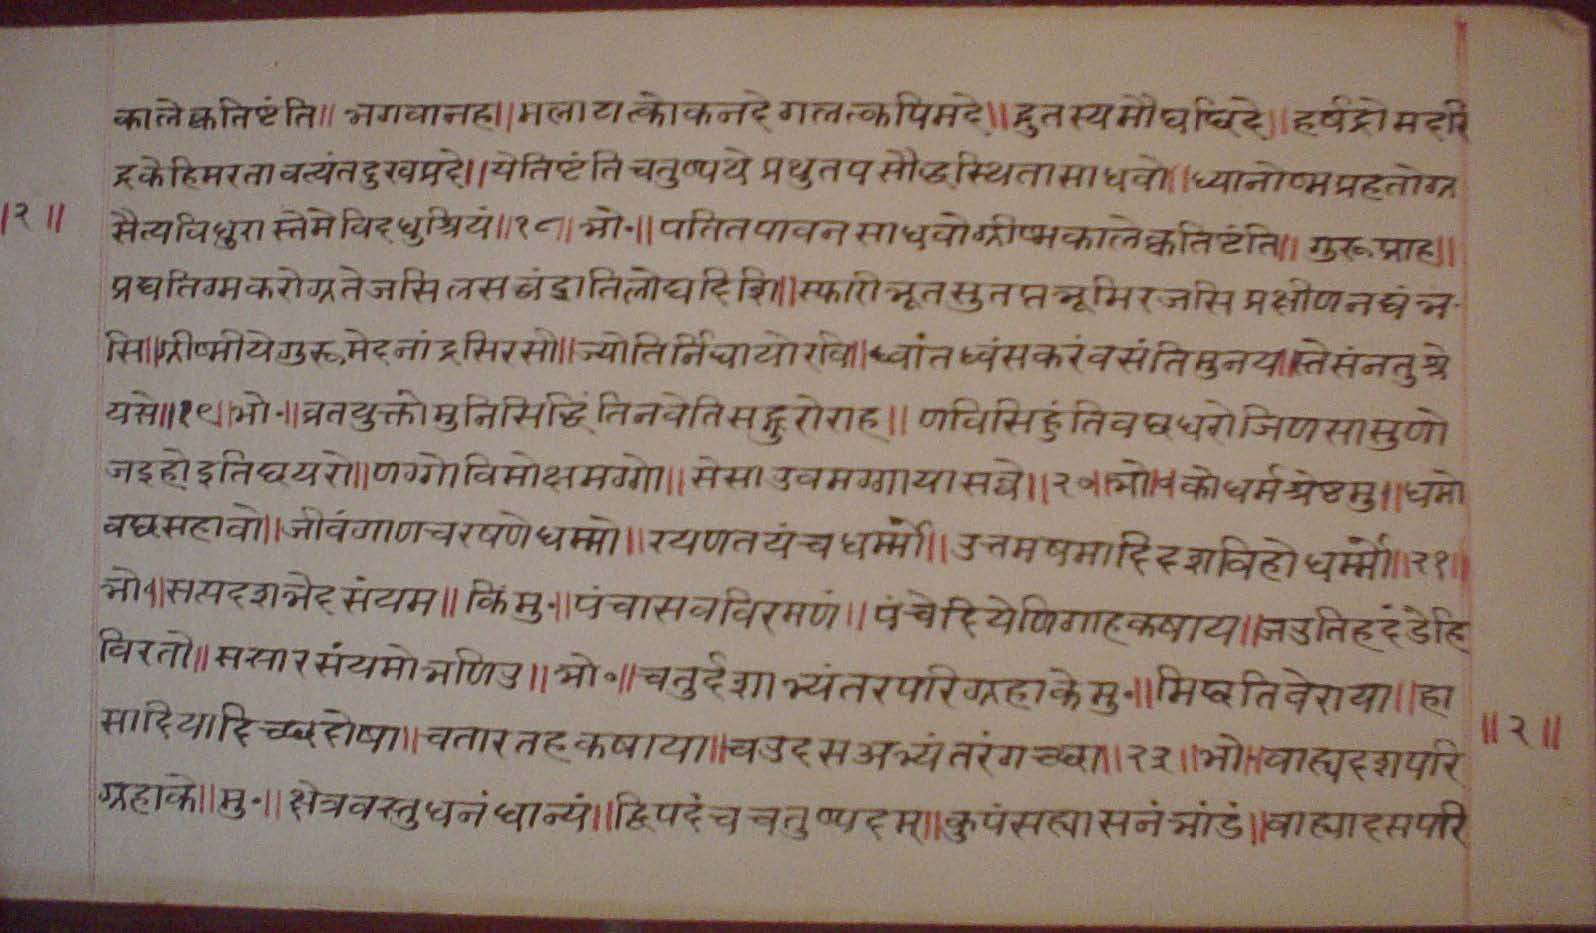 कालेक्वतिष्टंति॥ भगवानह॥ मलाटात्कोकनदे गलत्कपिमदे॥ द्रुतस्यमौघछिदे॥ हर्षद्रोमदरि
द्रकेहिमरतावत्यंतदुखप्रदे॥ येतिष्टंति चतुष्पथे प्रथुतपसौद्धस्थितासाधवो॥ ध्यानोष्मप्रहतोग्र
॥२॥
सैत्यविधुरास्तेमेविदधुश्रियं॥१८॥ भो॰॥ पतितपावनसाधवोग्रीष्मकालेक्वतिष्टंति॥ गुरूप्राह॥
प्रद्यतिग्मकरोग्रतेजसिलसच्चंडातिलोद्यदिशि॥ स्फारीभूतसुतप्तभूमिरजसि प्रक्षीणनद्यंभ॰
सि॥ ग्रीष्मीयेगुरूमेदनांद्रसिरसो॥ ज्योतिर्निधायोरवि॥ ध्वांतध्वंसकरंवसंतिमुनय॥ स्तेसंनतुश्रे
यसे॥१९॥ भो॰॥ व्रतयुक्तोमुनिसिद्धिंतिनवेतिसद्गुरोराह॥ णविसिद्धंतिवछधरोजिणसासुणो
जइहोइतिछयरो॥ णग्गोविमोक्षमग्गो॥ सेसाउवमग्गायासव्वे॥२०॥ भो॰॥ कोधर्मश्रेष्टमु॥ धमो
वछसहावो॥ जीवंगाणचरषणेधम्मो॥ रयणतयंचधर्म्मो॥ उत्तमषमादिदशविहोधर्म्मो॥२१॥
भो॰॥ सत्पदशभेदसंयम॥ किंमु॰॥ पंचासवविरमणं॥ पंचेदियेणिगाहकषाय॥ जउतिहदंडेहि
विरतो॥ मसारसंयमोभणिउ॥ भो॰॥ चतुर्दशाभ्यंतरपरिग्रहाकेमु॰॥ मिछतिवेराया॥ हा
सादियादिच्छदोषा॥ चतारतहकषाया॥ चउदसअभ्यंतरंगच्छा॥२३॥ भो॰॥ वाह्यदशपरि
॥२॥
ग्रहाके॥ मु॰॥ क्षेत्रवस्तुधनंधान्यं॥ द्विपदंचचतुष्पदम्॥ कुपंसह्यासनंभांडं॥ वाह्यादसपरि